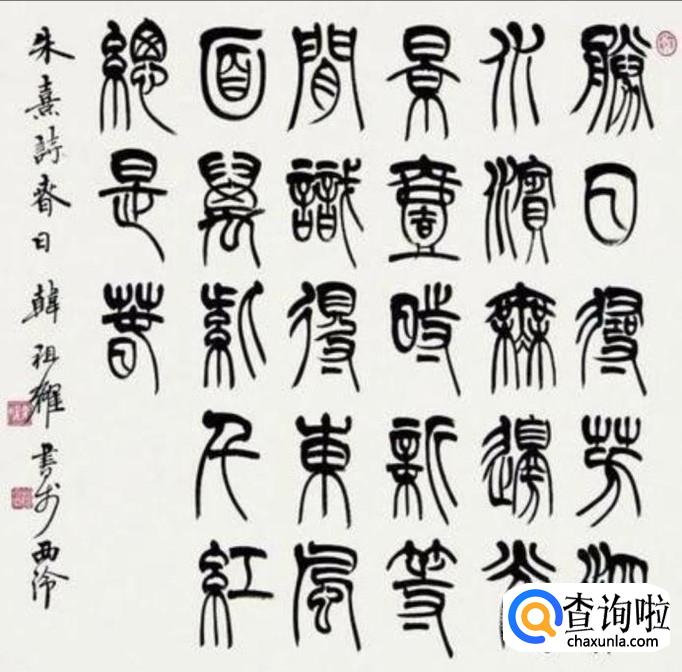 勝日尋芳泗
水濱無邊光
景壹時新等
閒識得東風
面萬紫千紅
總是春
朱熹詩春日 韓祖耀書於西泠
查询啦
chaxunla.com